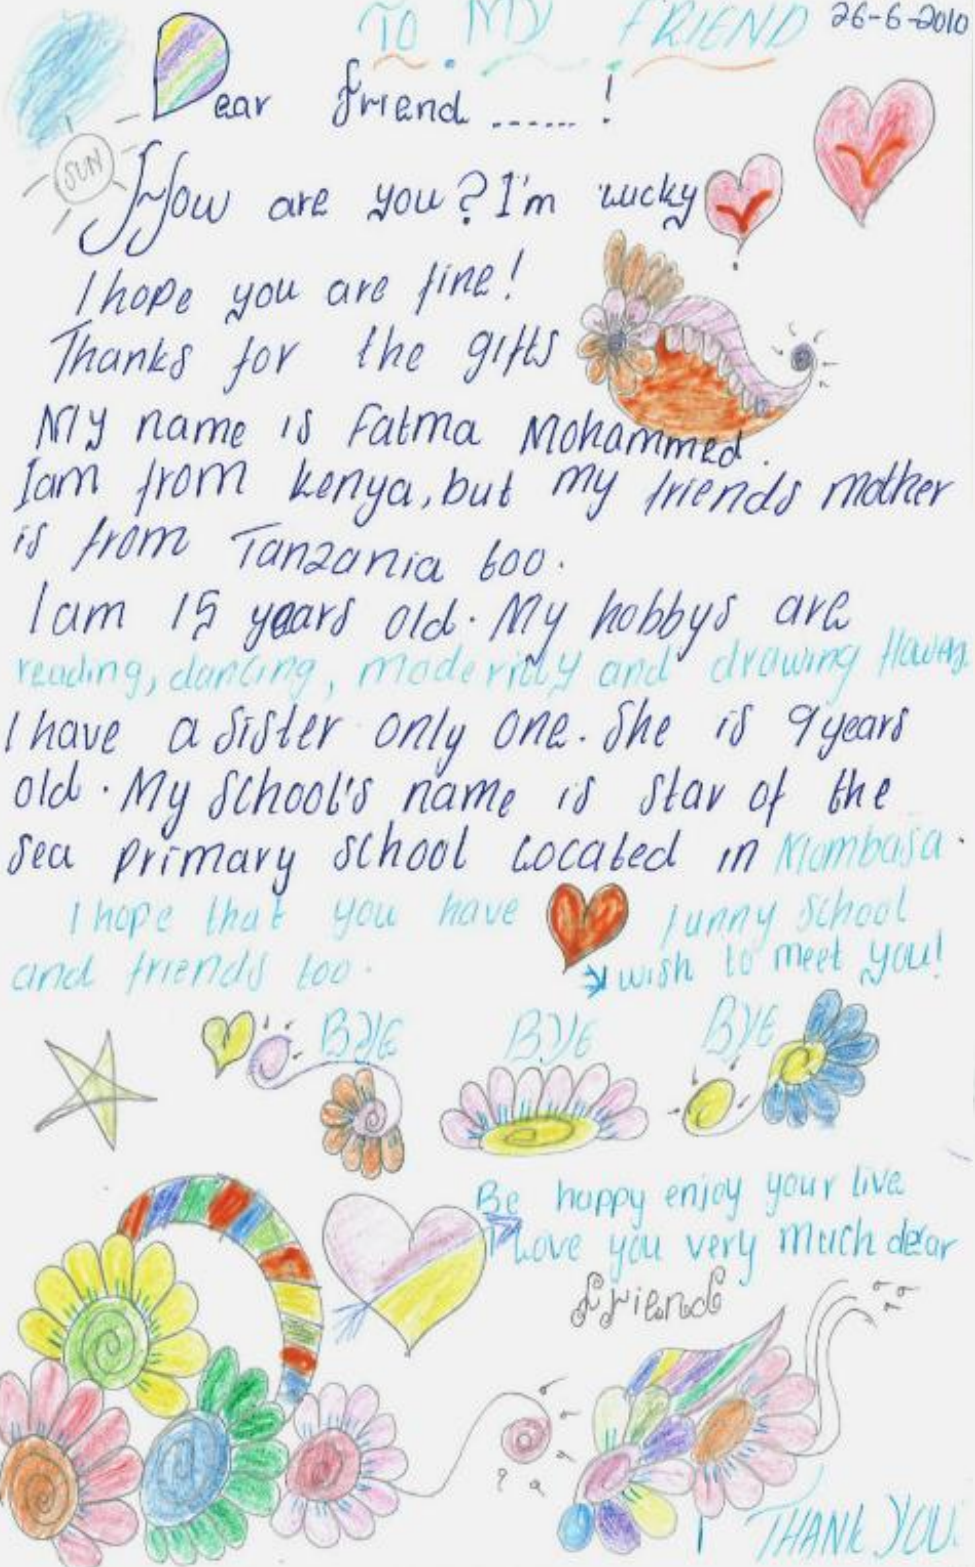 TO MY FRIEND 26-6-2010
Dear friend ......!
SUN
How are you? I'm lucky
I hope you are fine!
Thanks for the gifts
My name is Fatma Mohammed.
Iam from kenya, but my friends mother
is from Tanzania too.
I am 15 years old. My hobbys are
reading, dancing, and drawing
I have a sister only one. She is 9 years
old. My school's name is star of the
sea primary school Located in Mombasa.
I hope that you have funny school
and friends too.
wish to meet you!
BYE BYE BYE
Be happy enjoy your live
I Love you very much dear
friend
THANK YOU